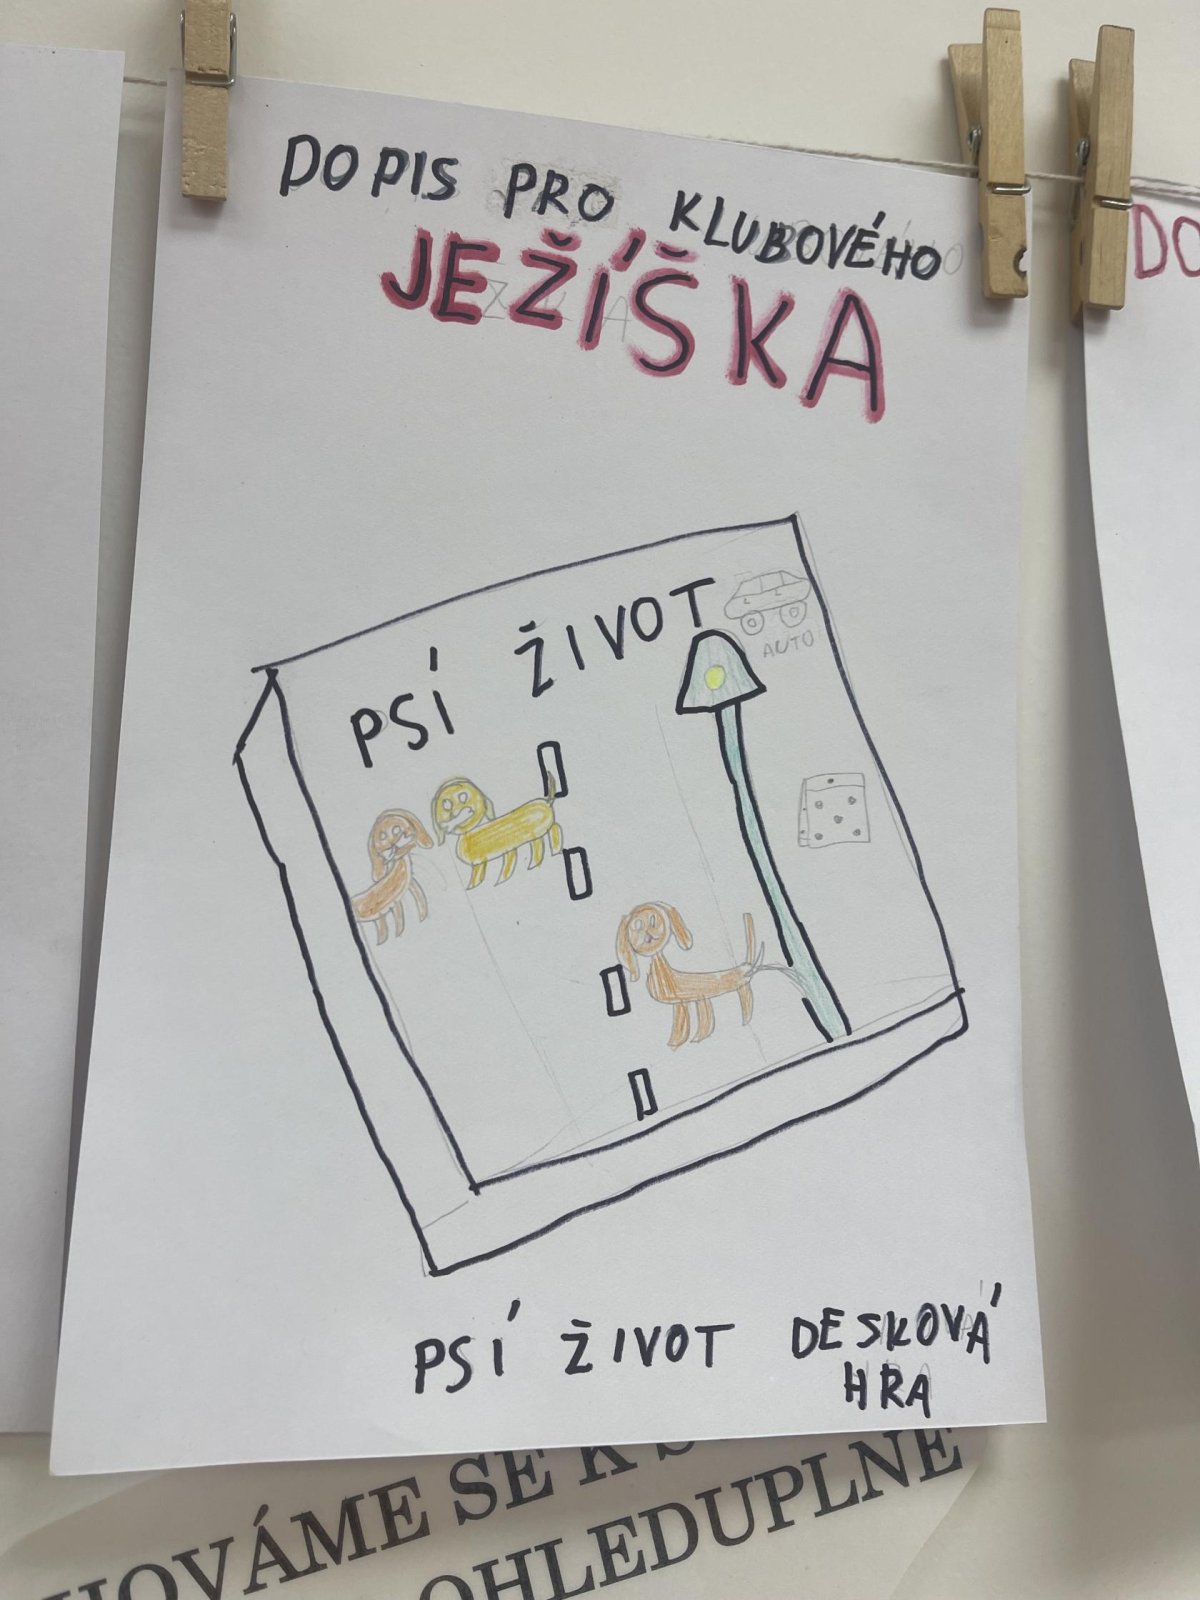 DOPIS PRO KLUBOVÉHO
JEŽÍŠKA
DO
PSÍ ŽIVOT
AUTO
PSÍ ŽIVOT DESKOVÁ
HRA
HOVÁME SE K S
OHLEDUPLNĚ